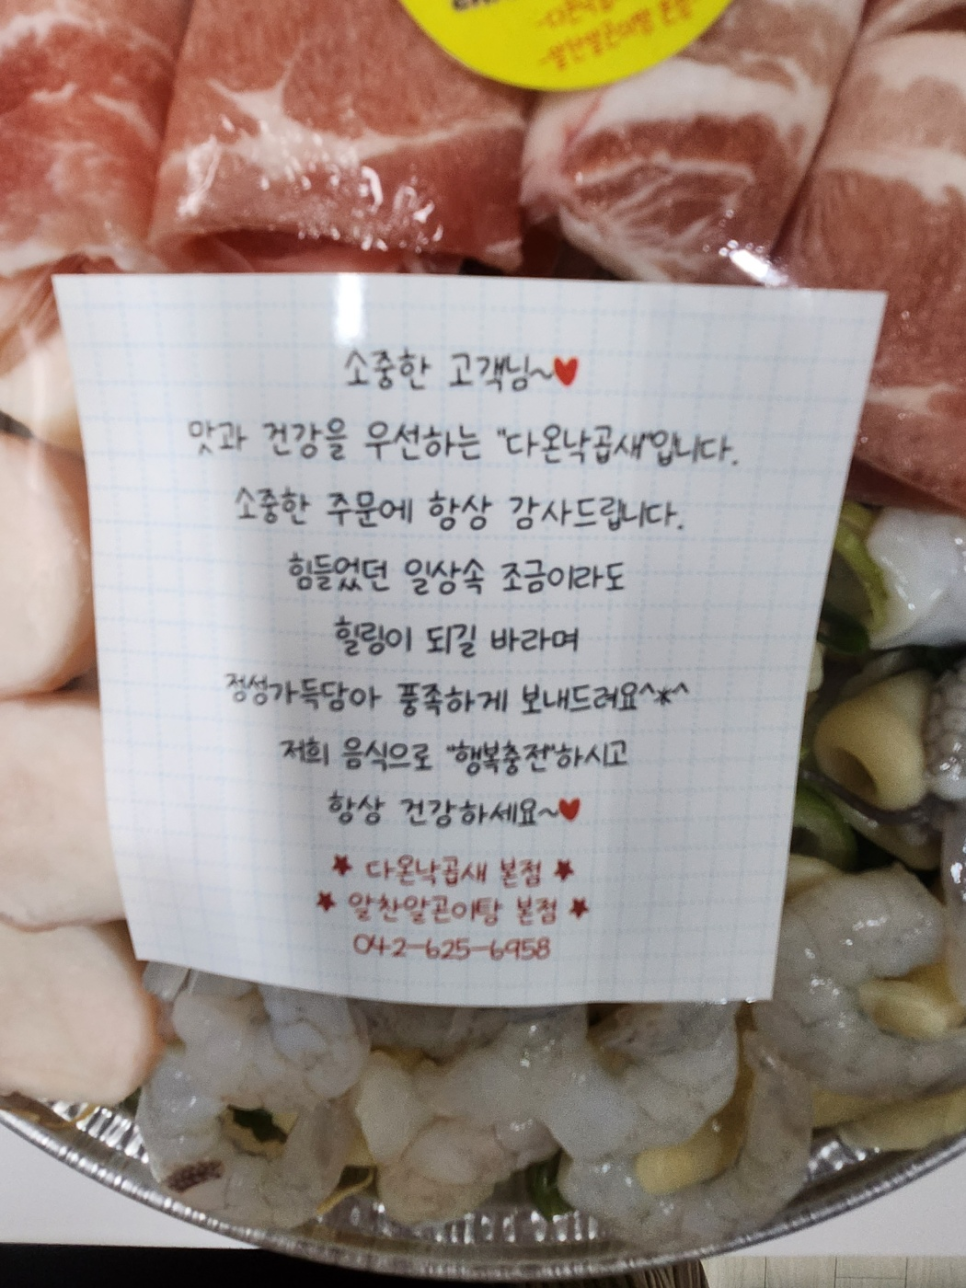 -다온낙곱
-알찬알곤이탕 본점
소중한 고객님~♥
맛과 건강을 우선하는 "다온낙곱새"입니다.
소중한 주문에 항상 감사드립니다.
힘들었던 일상속 조금이라도
힐링이 되길 바라며
정성가득담아 풍족하게 보내드려요^*^
저희 음식으로 "행복충전"하시고
항상 건강하세요~♥
★ 다온낙곱새 본점 ★
★ 알찬알곤이탕 본점 ★
042-625-6958